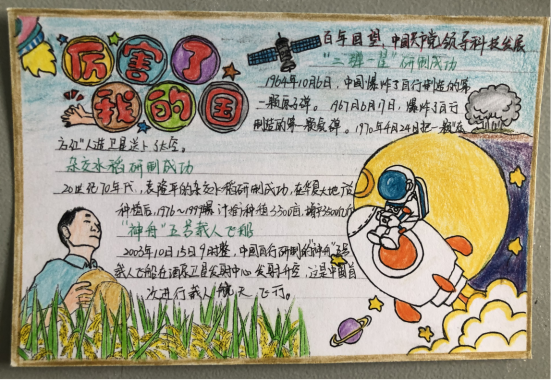 厉害了
我的国
百年回望 中国共产党领导科技发展
"二弹一星"研制成功
1964年10月6日,中国爆炸了自行制造的第
一颗原子弹。1967年6月17日,爆炸了自行
制造的第一颗氢弹。1970年4月24日把一颗
人造卫星送上太空。
杂交水稻研制成功
20世纪70年代,袁隆平的杂交水稻研制成功,在华夏大地广
种植后,1976~1999累计
"神舟"五号载人飞船
2003年10月15日9时整,中国自行研制的"神舟"五号
载人飞船在酒泉卫星发射中心发射升空,这是中国首
次进行载人航天飞行。